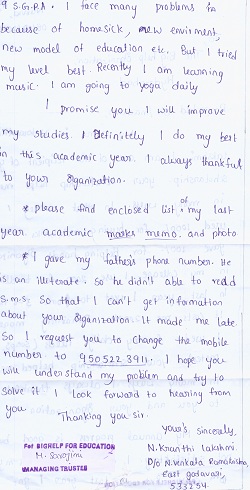 9 S.G.P.A. I face many problems in
because of homesick, new enviment,
new model of education etc. But I tried
my level best. Recently I am learning
music. I am going to yoga daily
I promise you I will improve
my studies. I Definitely I do my best
in this academic year. I always thankful
to your organization.
* please find enclosed list of my last
year academic marks memo. and photo
* I gave my father's phone number. He
is an illiterate. So he didn't able to redd
S.m.s. So that I can't get information
about your organization. It made me late.
So I request you to change the mobile
number to 950522 3911. I hope you
will understand my problem and try to
solve it. I look forward to hearing from
you. Thanking you sir.
your's sincerely,
For BIGHELP FOR EDUCATION
M. Sarojini
MANAGING TRUSTEE
N. Kranthi lakshmi
D/o N. Venkata Ramakrishna
East godavari,
533254